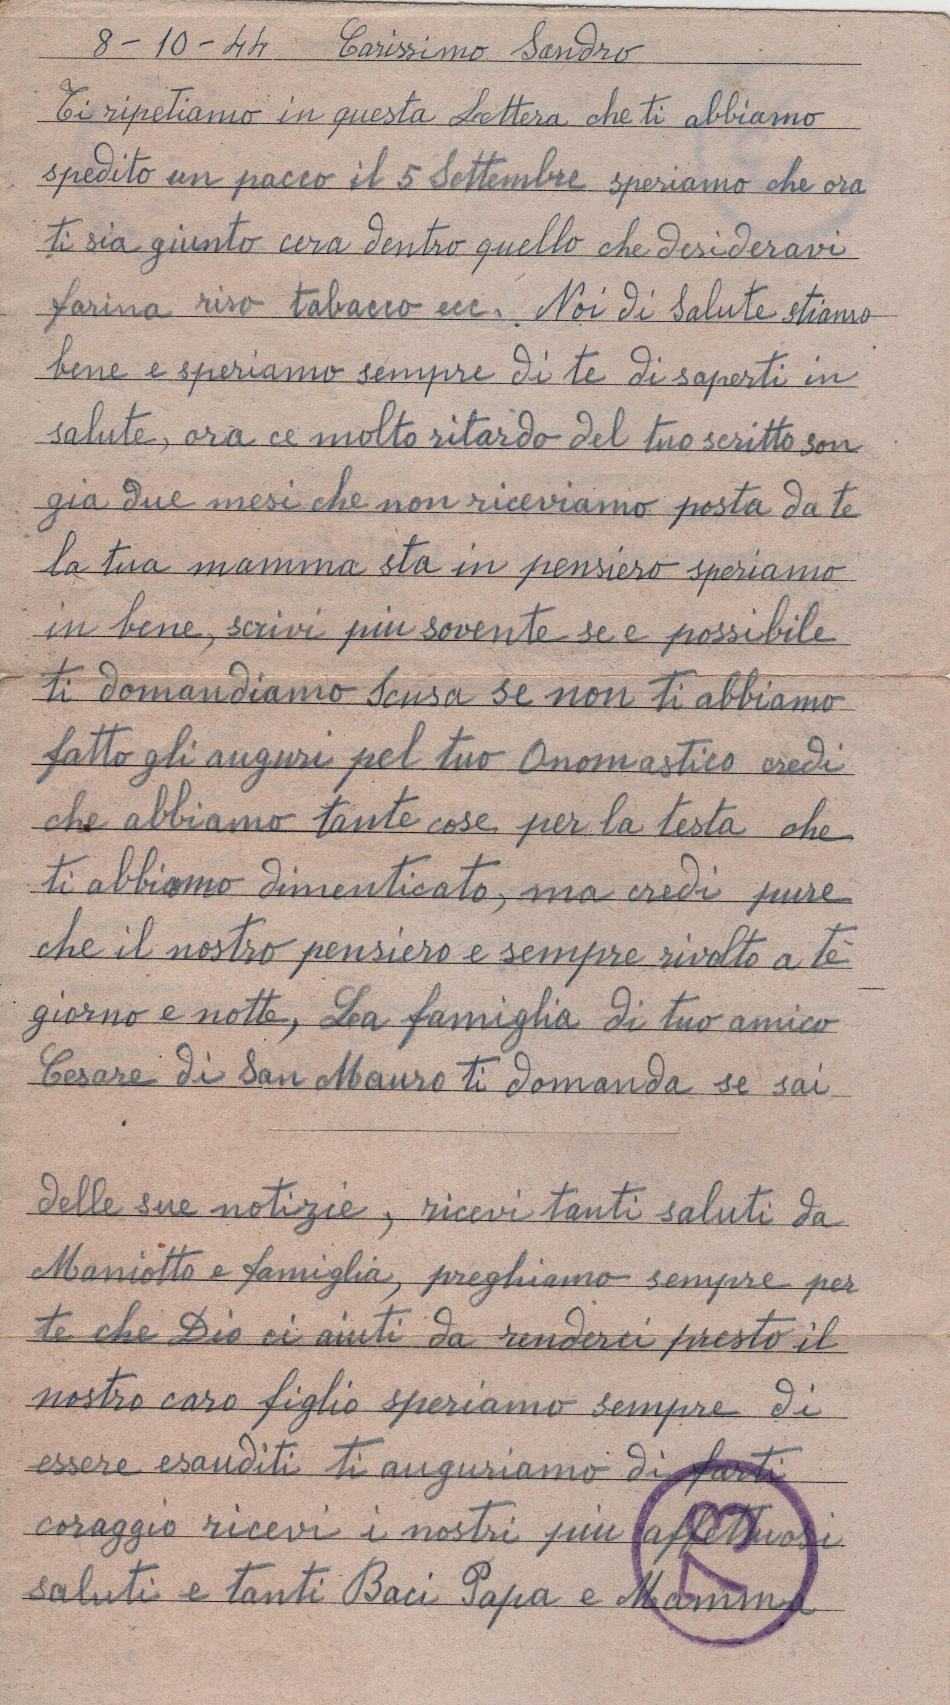 8-10-44 Carissimo Sandro
Ti ripetiamo in questa Lettera che ti abbiamo
spedito un pacco il 5 Settembre speriamo che ora
ti sia giunto cera dentro quello che desideravi
farina riso tabacco ecc. Noi di Salute stiamo
bene e speriamo sempre di te di saperti in
salute, ora ce molto ritardo del tuo scritto son
gia due mesi che non riceviamo posta da te
la tua mamma sta in pensiero speriamo
in bene, scrivi piu sovente se e possibile
ti domandiamo Scusa se non ti abbiamo
fatto gli auguri pel tuo Onomastico credi
che abbiamo tante cose per la testa che
ti abbiamo dimenticato, ma credi pure
che il nostro pensiero e sempre rivolto a tè
giorno e notte, La famiglia di tuo amico
Cesare di San Mauro ti domanda se sai
delle sue notizie, ricevi tanti saluti da
Maniotto e famiglia, preghiamo sempre per
te che Dio ci aiuti da renderci presto il
nostro caro figlio speriamo sempre di
essere esauditi ti auguriamo di farti
coraggio ricevi i nostri piu affettuosi
saluti e tanti Baci Papa e Mamma
13